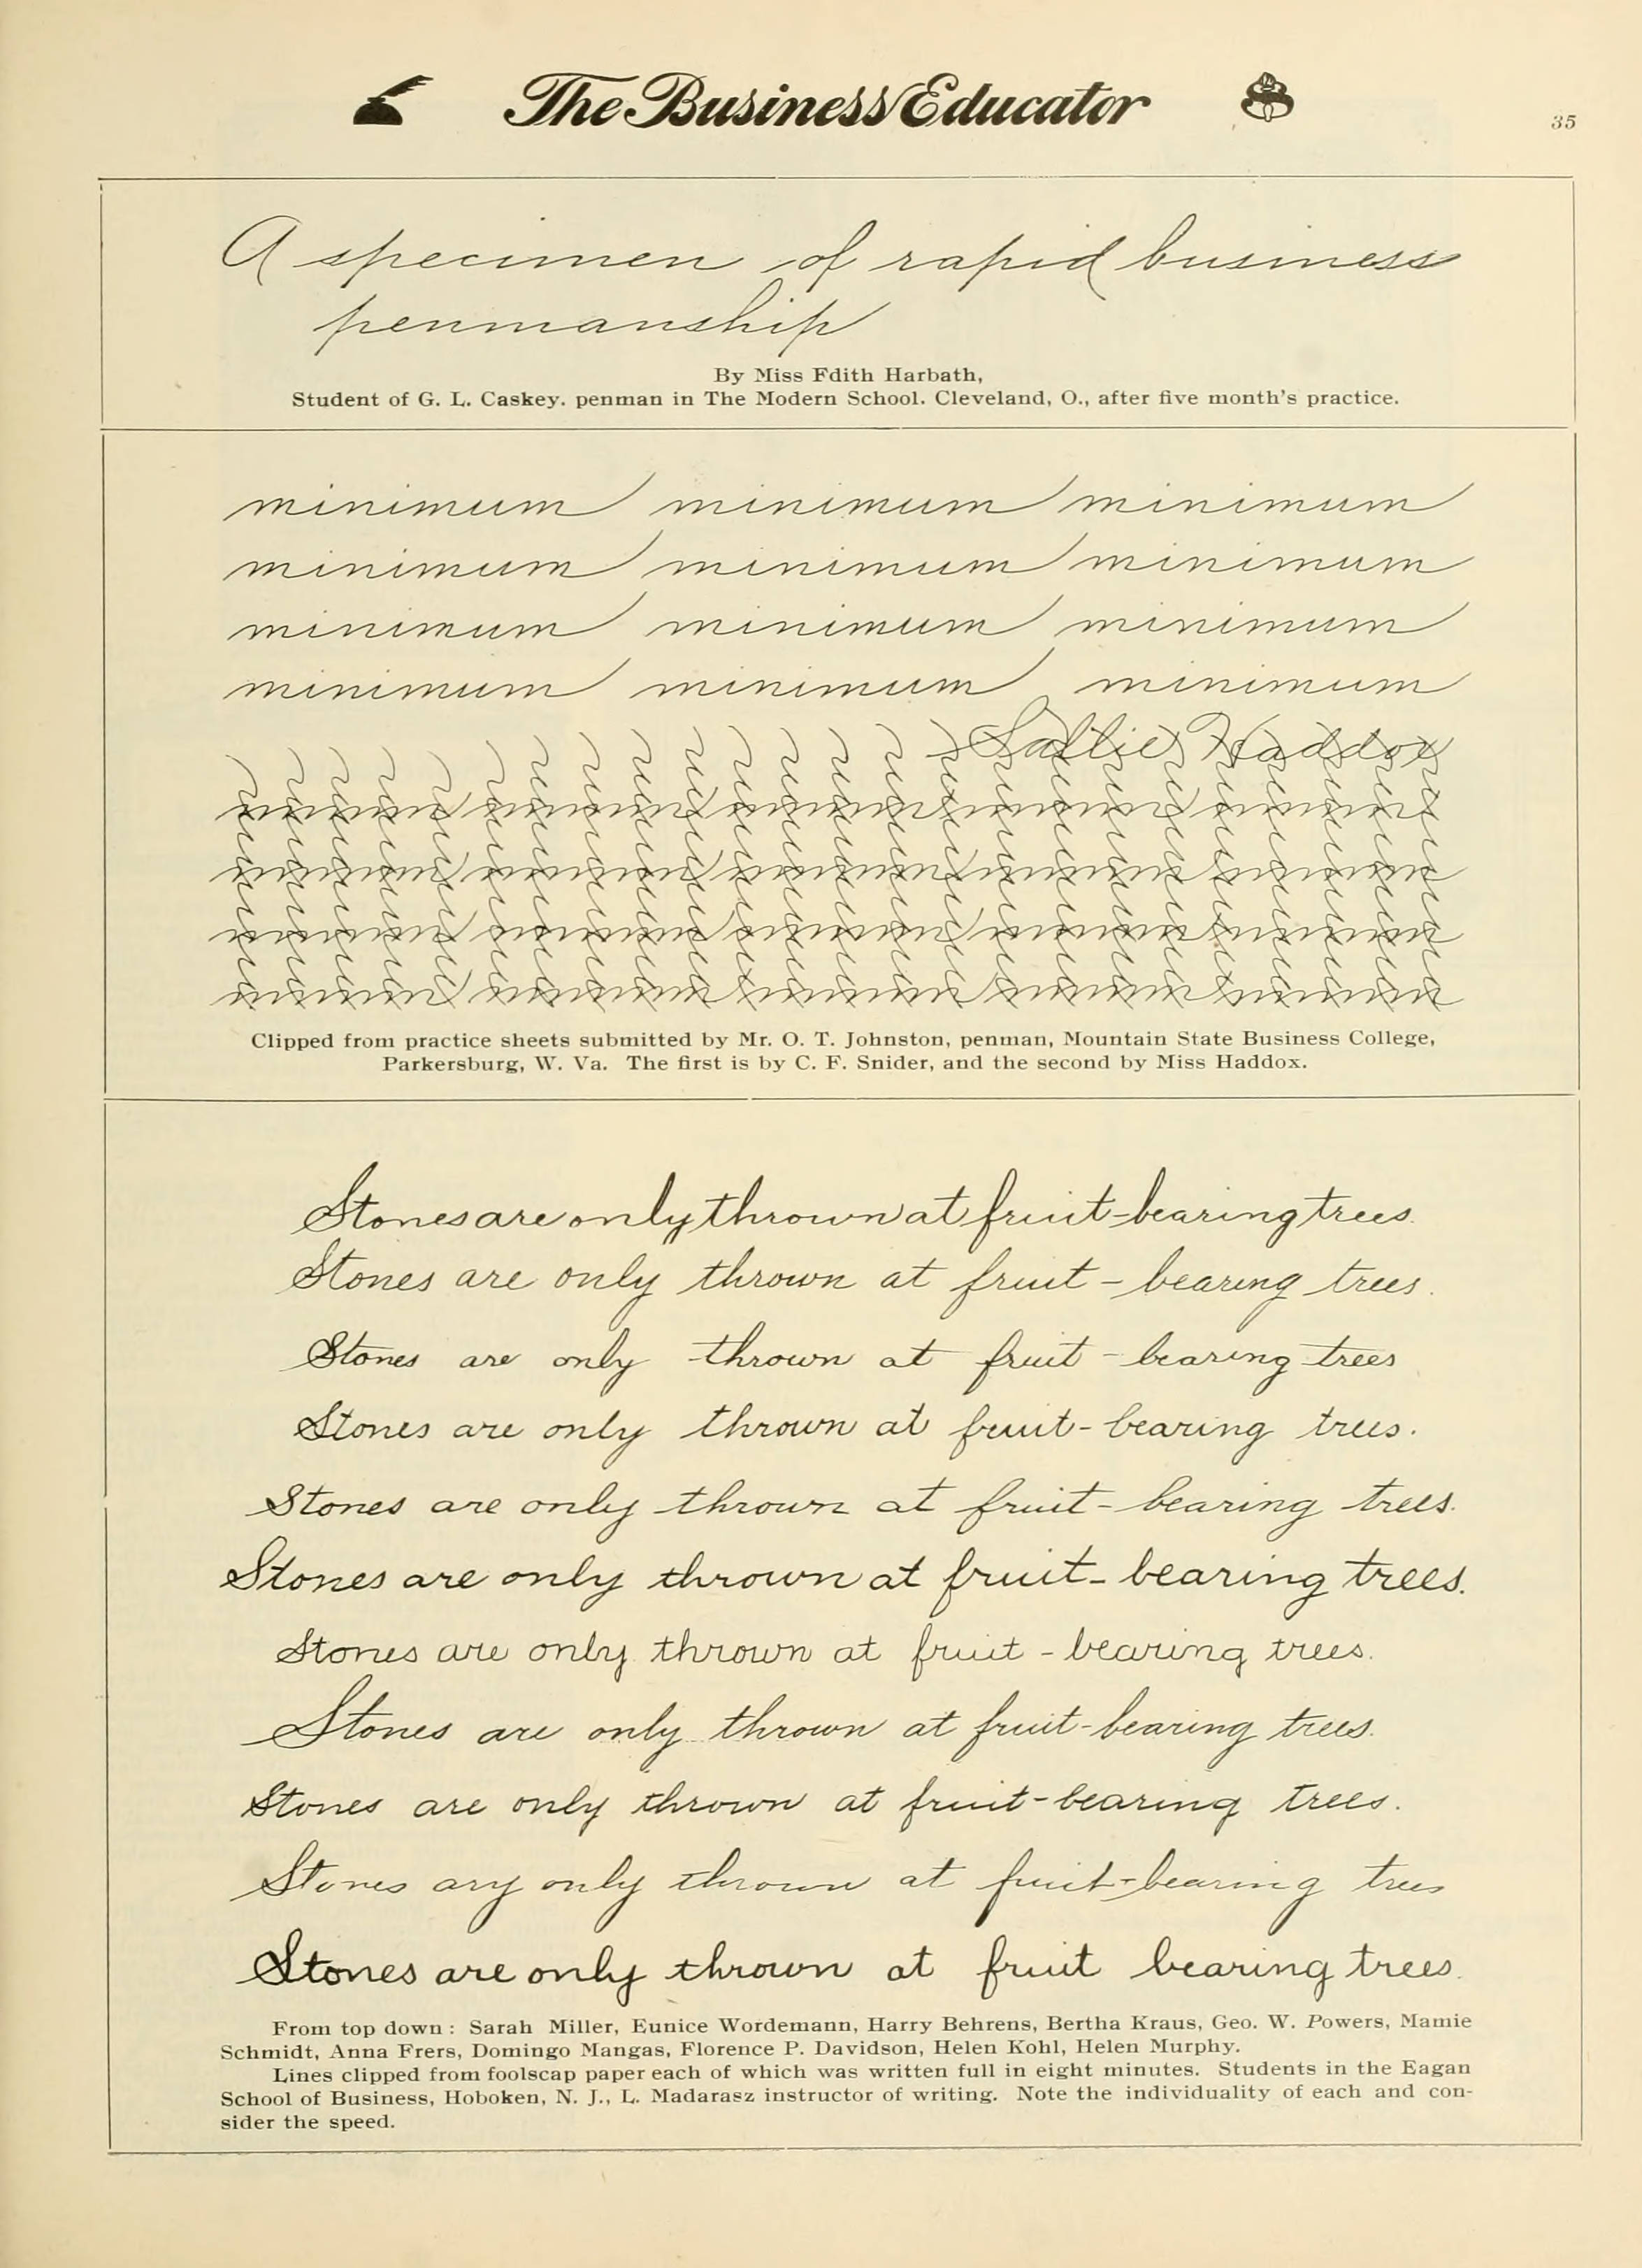 The Business Educator
35
A specimen of rapid business
penmanship
By Miss Fdith Harbath,
Student of G. L. Caskey. penman in The Modern School. Cleveland, O., after five month's practice.
minimum minimum minimum
minimum minimum minimum
minimum minimum minimum
minimum minimum minimum
Sallie Haddox
Clipped from practice sheets submitted by Mr. O. T. Johnston, penman, Mountain State Business College,
Parkersburg, W. Va. The first is by C. F. Snider, and the second by Miss Haddox.
Stones are only thrown at fruit-bearing trees.
Stones are only thrown at fruit - bearing trees.
Stones are only thrown at fruit - bearing trees
Stones are only thrown at fruit-bearing trees.
Stones are only thrown at fruit-bearing trees.
Stones are only thrown at fruit-bearing trees.
Stones are only thrown at fruit - bearing trees.
Stones are only thrown at fruit-bearing trees.
Stones are only thrown at fruit-bearing trees.
Stones ary only thrown at fruit-bearing trees
Stones are only thrown at fruit bearing trees.
From top down : Sarah Miller, Eunice Wordemann, Harry Behrens, Bertha Kraus, Geo. W. Powers, Mamie
Schmidt, Anna Frers, Domingo Mangas, Florence P. Davidson, Helen Kohl, Helen Murphy.
Lines clipped from foolscap paper each of which was written full in eight minutes. Students in the Eagan
School of Business, Hoboken, N. J., L. Madarasz instructor of writing. Note the individuality of each and con-
sider the speed.